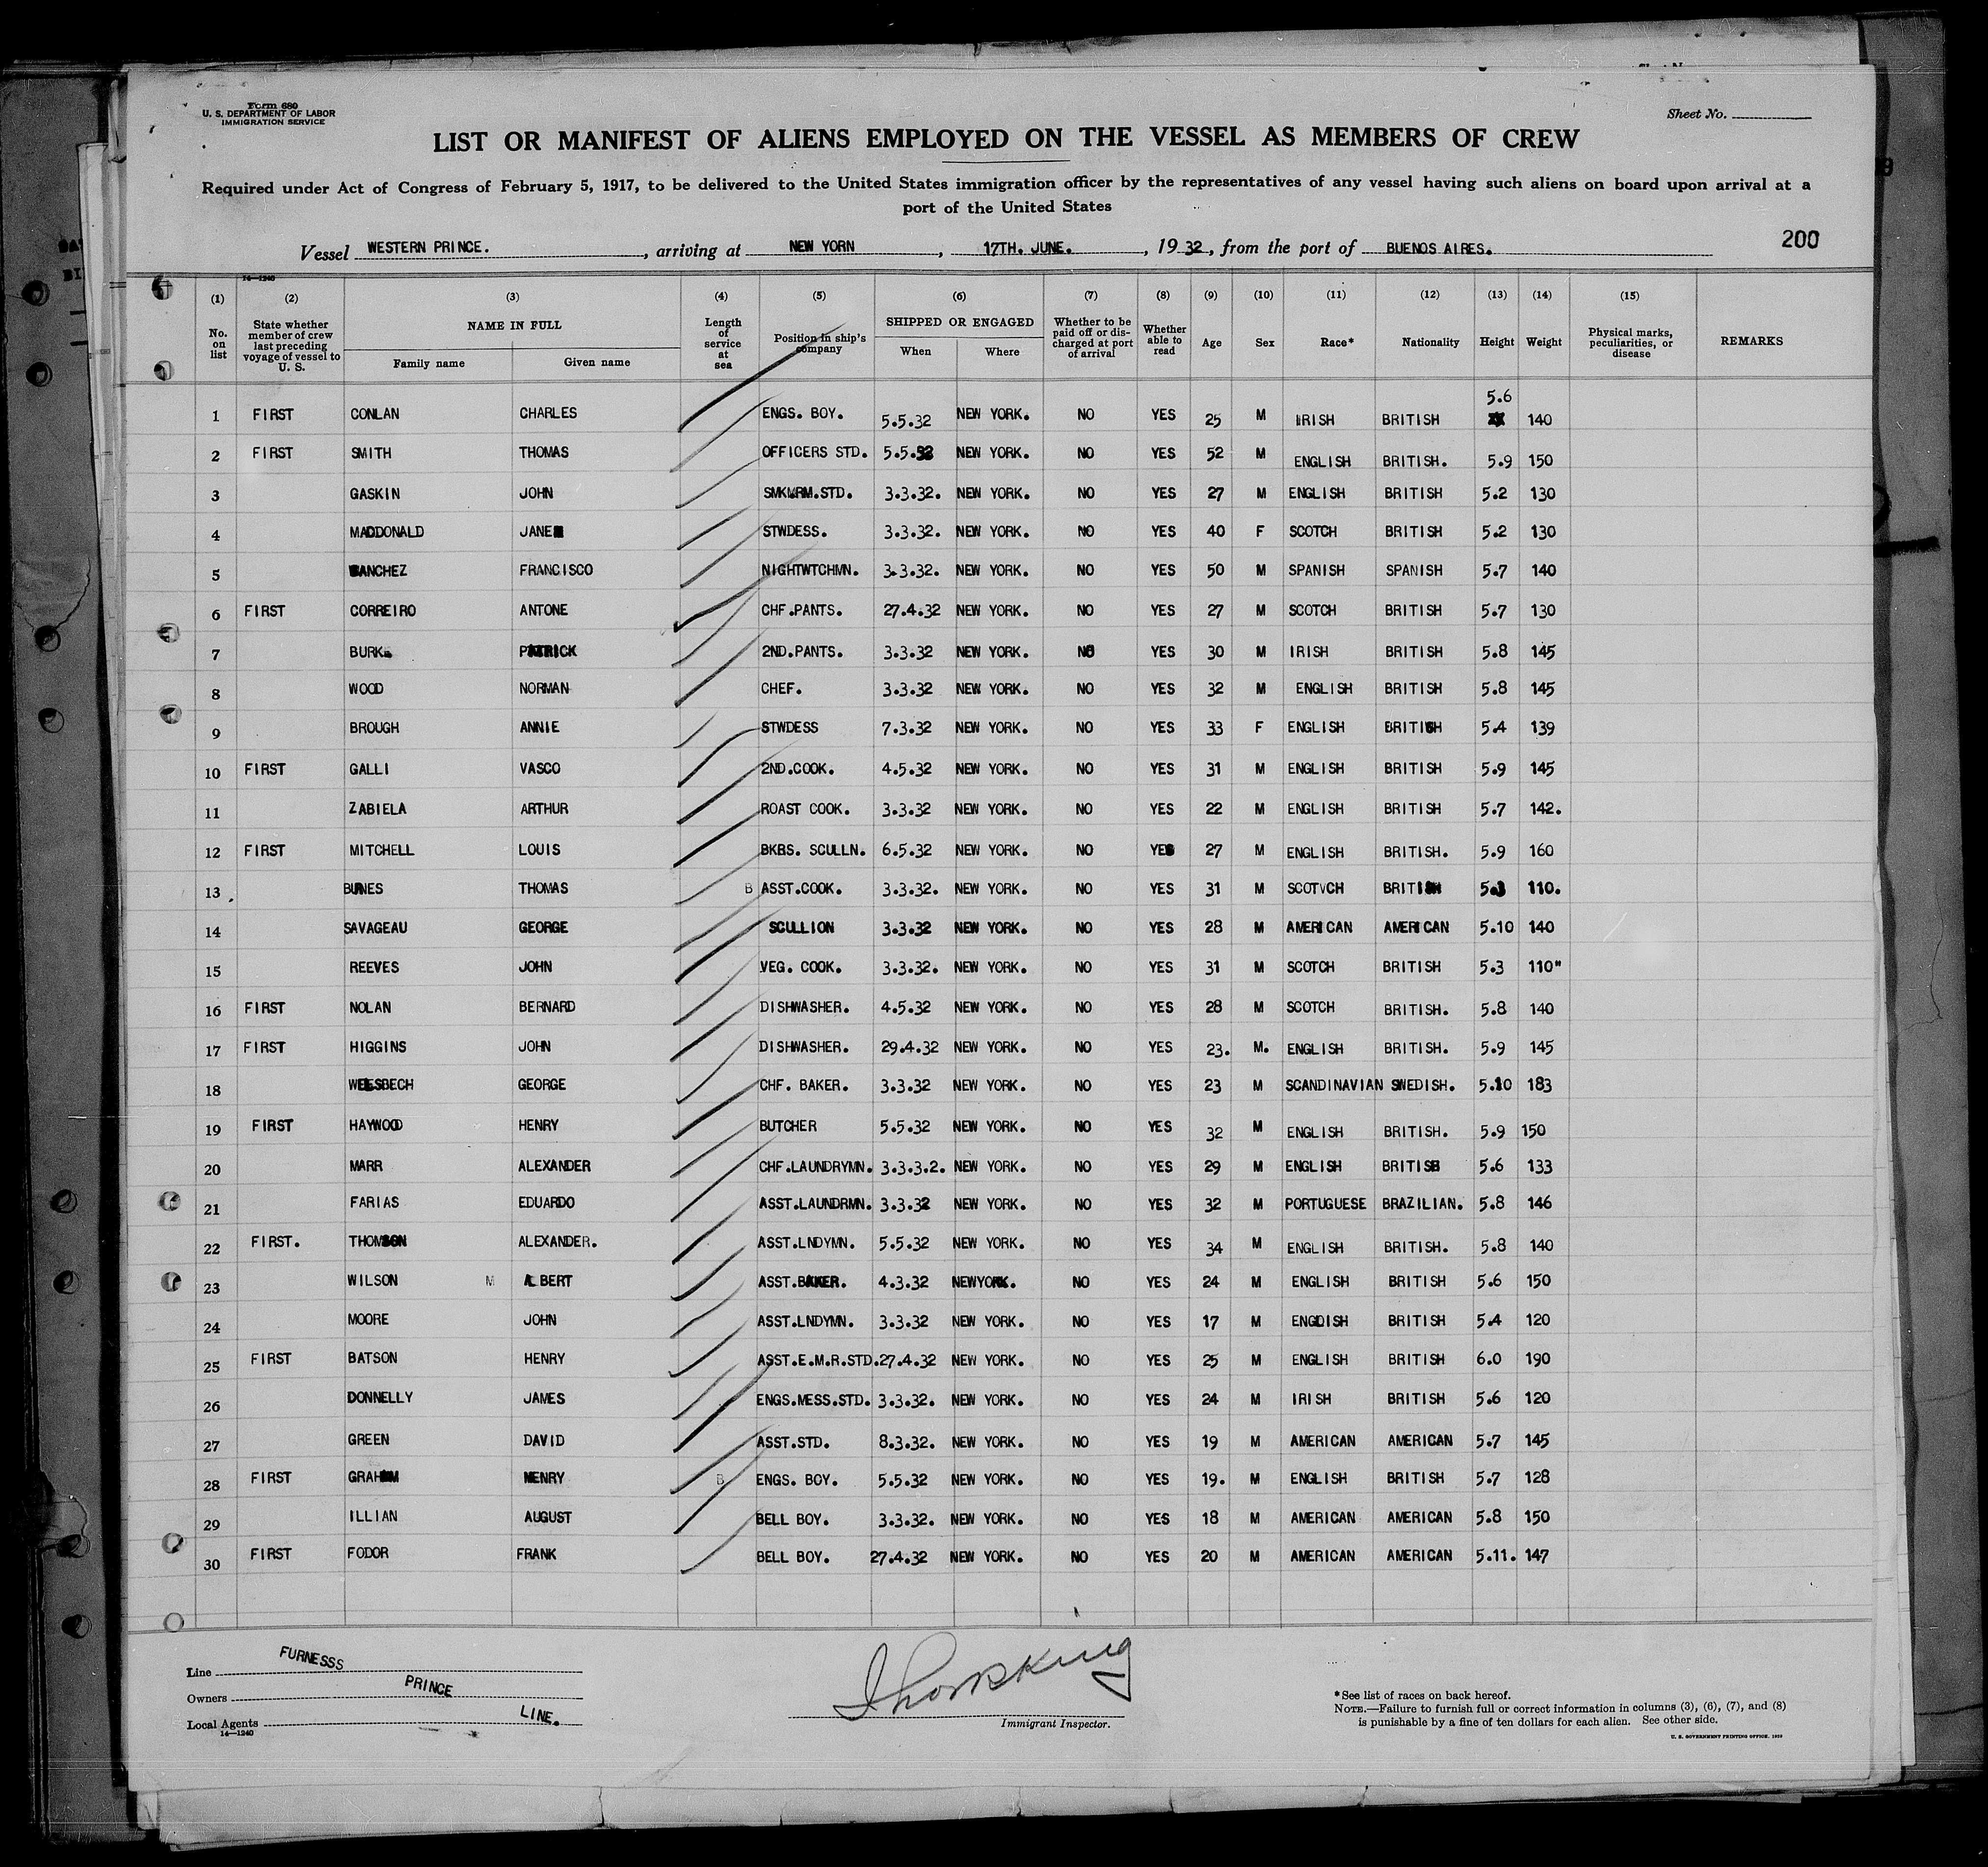 Form 680
U. S. DEPARTMENT OF LABOR
IMMIGRATION SERVICE
Sheet No.
LIST OR MANIFEST OF ALIENS EMPLOYED ON THE VESSEL AS MEMBERS OF CREW
Required under Act of Congress of February 5, 1917, to be delivered to the United States immigration officer by the representatives of any vessel having such aliens on board upon arrival at a
port of the United States
200
Vessel WESTERN PRINCE. , arriving at NEW YORN , 17TH. JUNE. , 19 32 , from the port of BUENOS AIRES.
14—1240
(1) (2) (3) (4) (5) (6) (7) (8) (9) (10) (11) (12) (13) (14) (15)
No. on list | State whether member of crew last preceding voyage of vessel to U. S. | NAME IN FULL Family name Given name | Length of service at sea | Position in ship's company | SHIPPED OR ENGAGED When Where | Whether to be paid off or discharged at port of arrival | Whether able to read | Age | Sex | Race* | Nationality | Height | Weight | Physical marks, peculiarities, or disease | REMARKS
1 FIRST CONLAN CHARLES ENGS. BOY. 5.5.32 NEW YORK. NO YES 25 M IRISH BRITISH 5.6 140
2 FIRST SMITH THOMAS OFFICERS STD. 5.5.32 NEW YORK. NO YES 52 M ENGLISH BRITISH. 5.9 150
3 GASKIN JOHN SMKMRM.STD. 3.3.32. NEW YORK. NO YES 27 M ENGLISH BRITISH 5.2 130
4 MADDONALD JANE STWDESS. 3.3.32. NEW YORK. NO YES 40 F SCOTCH BRITISH 5.2 130
5 SANCHEZ FRANCISCO NIGHTWTCHMN. 3.3.32. NEW YORK. NO YES 50 M SPANISH SPANISH 5.7 140
6 FIRST CORREIRO ANTONE CHF.PANTS. 27.4.32 NEW YORK. NO YES 27 M SCOTCH BRITISH 5.7 130
7 BURKE PATRICK 2ND.PANTS. 3.3.32 NEW YORK. NO YES 30 M IRISH BRITISH 5.8 145
8 WOOD NORMAN CHEF. 3.3.32 NEW YORK. NO YES 32 M ENGLISH BRITISH 5.8 145
9 BROUGH ANNIE STWDESS 7.3.32 NEW YORK. NO YES 33 F ENGLISH BRITISH 5.4 139
10 FIRST GALLI VASCO 2ND.COOK. 4.5.32 NEW YORK. NO YES 31 M ENGLISH BRITISH 5.9 145
11 ZABIELA ARTHUR ROAST COOK. 3.3.32 NEW YORK. NO YES 22 M ENGLISH BRITISH 5.7 142.
12 FIRST MITCHELL LOUIS BKRS. SCULLN. 6.5.32 NEW YORK. NO YES 27 M ENGLISH BRITISH. 5.9 160
13 THOMAS B ASST.COOK. 3.3.32. NEW YORK. NO YES 31 M SCOTVCH BRITISH 5.3 110.
14 SAVAGEAU GEORGE SCULLION 3.3.32 NEW YORK. NO YES 28 M AMERICAN AMERICAN 5.10 140
15 REEVES JOHN VEG. COOK. 3.3.32. NEW YORK. NO YES 31 M SCOTCH BRITISH 5.3 110"
16 FIRST NOLAN BERNARD DISHWASHER. 4.5.32 NEW YORK. NO YES 28 M SCOTCH BRITISH. 5.8 140
17 FIRST HIGGINS JOHN DISHWASHER. 29.4.32 NEW YORK. NO YES 23. M. ENGLISH BRITISH. 5.9 145
18 WEESBECH GEORGE CHF. BAKER. 3.3.32 NEW YORK. NO YES 23 M SCANDINAVIAN SWEDISH. 5.10 183
19 FIRST HAYWOOD HENRY BUTCHER 5.5.32 NEW YORK. NO YES 32 M ENGLISH BRITISH. 5.9 150
20 MARR ALEXANDER CHF.LAUNDRYMN. 3.3.3.2. NEW YORK. NO YES 29 M ENGLISH BRITISH 5.6 133
21 FARIAS EDUARDO ASST.LAUNDRMN. 3.3.32 NEW YORK. NO YES 32 M PORTUGUESE BRAZILIAN. 5.8 146
22 FIRST. THOMSON ALEXANDER. ASST.LNDYMN. 5.5.32 NEW YORK. NO YES 34 M ENGLISH BRITISH. 5.8 140
23 WILSON M ALBERT ASST.BAKER. 4.3.32 NEWYORK. NO YES 24 M ENGLISH BRITISH 5.6 150
24 MOORE JOHN ASST.LNDYMN. 3.3.32 NEW YORK. NO YES 17 M ENGDISH BRITISH 5.4 120
25 FIRST BATSON HENRY ASST.E.M.R.STD. 27.4.32 NEW YORK. NO YES 25 M ENGLISH BRITISH 6.0 190
26 DONNELLY JAMES ENGS.MESS.STD. 3.3.32. NEW YORK. NO YES 24 M IRISH BRITISH 5.6 120
27 GREEN DAVID ASST.STD. 8.3.32. NEW YORK. NO YES 19 M AMERICAN AMERICAN 5.7 145
28 FIRST GRAHAM HENRY B ENGS. BOY. 5.5.32 NEW YORK. NO YES 19. M ENGLISH BRITISH 5.7 128
29 ILLIAN AUGUST BELL BOY. 3.3.32. NEW YORK. NO YES 18 M AMERICAN AMERICAN 5.8 150
30 FIRST FODOR FRANK BELL BOY. 27.4.32 NEW YORK. NO YES 20 M AMERICAN AMERICAN 5.11. 147
Line FURNESSS
Owners PRINCE
Local Agents LINE.
14—1240
Immigrant Inspector.
*See list of races on back hereof.
NOTE.—Failure to furnish full or correct information in columns (3), (6), (7), and (8)
is punishable by a fine of ten dollars for each alien. See other side.
U. S. GOVERNMENT PRINTING OFFICE, 1929